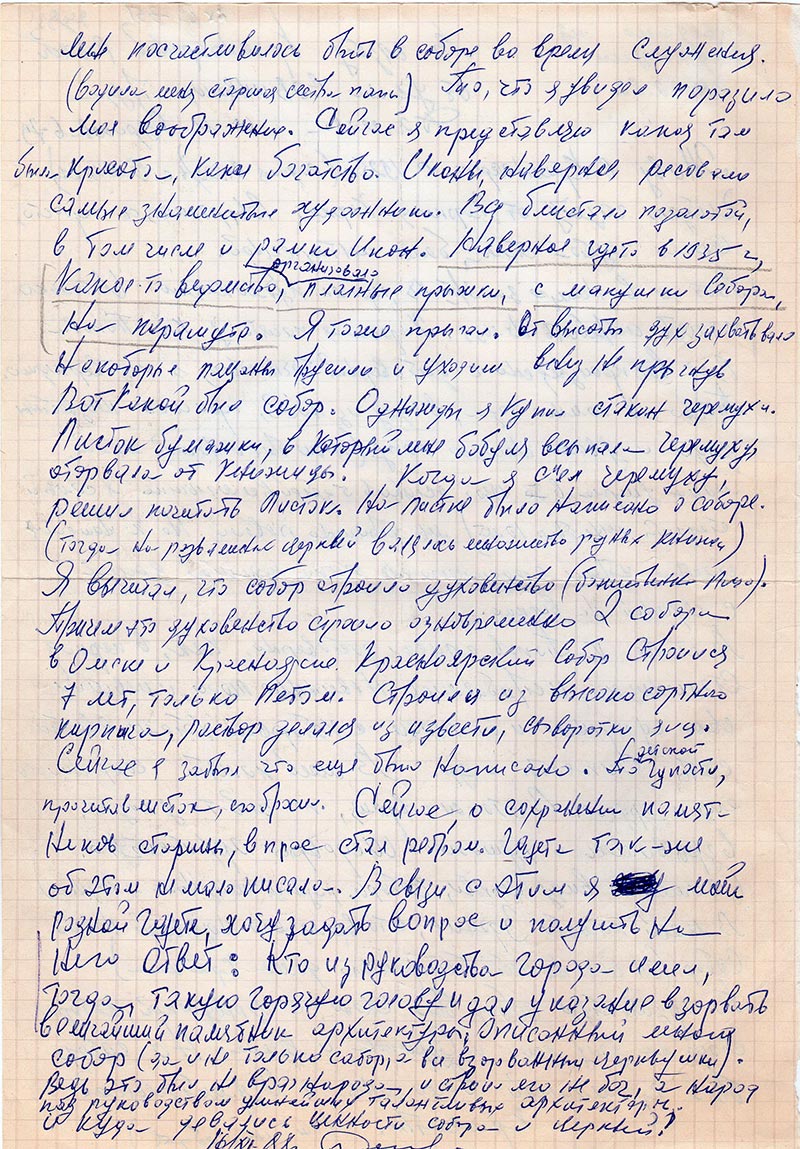 мне посчастливилось быть в соборе во время служения.
(водила меня старшая сестра папы) То, что я увидел поразило
моё воображение. Сейчас я представляю какая там
была красота, какое богатство. Иконы, наверное, рисовали
самые знаменитые художники. Всё блистало позолотой,
в том числе и рамки икон. Наверное где-то в 1935 г,
какое-то ведомство, организовало платные прыжки, с макушки Собора,
на парашуте. Я тоже прыгал. От высоты дух захватывало
Некоторые пацаны трусили и уходили вниз не прыгнув
Вот какой был собор. Однажды я купил стакан черемухи.
Листок бумажки, в который мне бабуля всыпала черемуху,
оторвала от книжицы. Когда я съел черемуху,
решил почитать листок. На листке было написано о соборе.
(тогда на развалинах церквей валялось множество разных книжек)
Я вычитал, что собор строило духовенство (божественные лица).
Причем это духовенство строило одновременно 2 собора
в Омске и Красноярске. Красноярский Собор строился
7 лет, только летом. Строился из высокосортного
кирпича, раствор делался из извести, сыворотки яиц.
Сейчас я забыл что еще было написано. По детской глупости,
прочитав листок, его бросил. Сейчас, о сохранении памят-
ников старины, впрос стал ребром. Газета так-же
об этом не мало писала. В связи с этим я моей
родной газете, хочу задать вопрос и получить на
него ответ: кто из руководства города имел,
тогда, такую горячую голову и дал указание взорвать
величайший памятник архитектуры, описанный мною
собор (да и не только собор, а все взорванные церквушки).
Ведь это был не враг народа, и строил его не бог, а народ
под руководством умнейших талантливых архитекторов.
и куда девались ценности собора и церквей?
88.